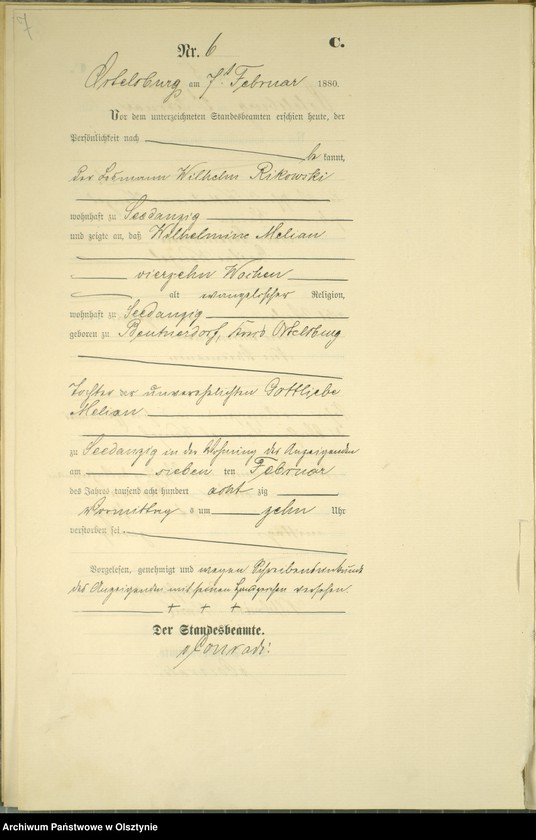 7
Nr. 6 C.
Ortelsburg am 7t Februar 1880.
Vor dem unterzeichneten Standesbeamten erschien heute, der
Persönlichkeit nach
be kannt,
der Losmann Wilhelm Rikowski
wohnhaft zu Seedanzig
und zeigte an, daß Wilhelmine Melian
vierzehn Wochen
alt evangelischer Religion,
wohnhaft zu Seedanzig
geboren zu Beutnerdorf, Ortelsburg
Tochter der unverehelichten Gottliebe
Melian
zu Seedanzig in der Wohnung des Anzeigenden
am sieben ten Februar
des Jahres tausend acht hundert acht zig
Vormittag s um zehn Uhr
verstorben sei.
Vorgelesen, genehmigt und wegen Schreibensunkunde
des Anzeigenden mit seinen Handzeichen versehen
† † †
Der Standesbeamte.
Conradi
Archiwum Państwowe w Olsztynie